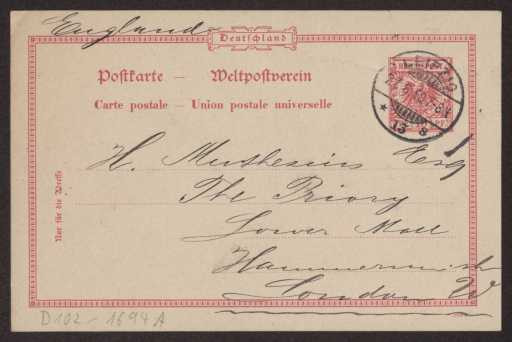 England
Deutschland
Postkarte — Weltpostverein
Carte postale — Union postale universelle
LEIPZIG
13 * 8
H. Muthesius Esq
The Priory
Lower Mall
Hammersmith
London W
Nur für die Adresse
D102-1694A